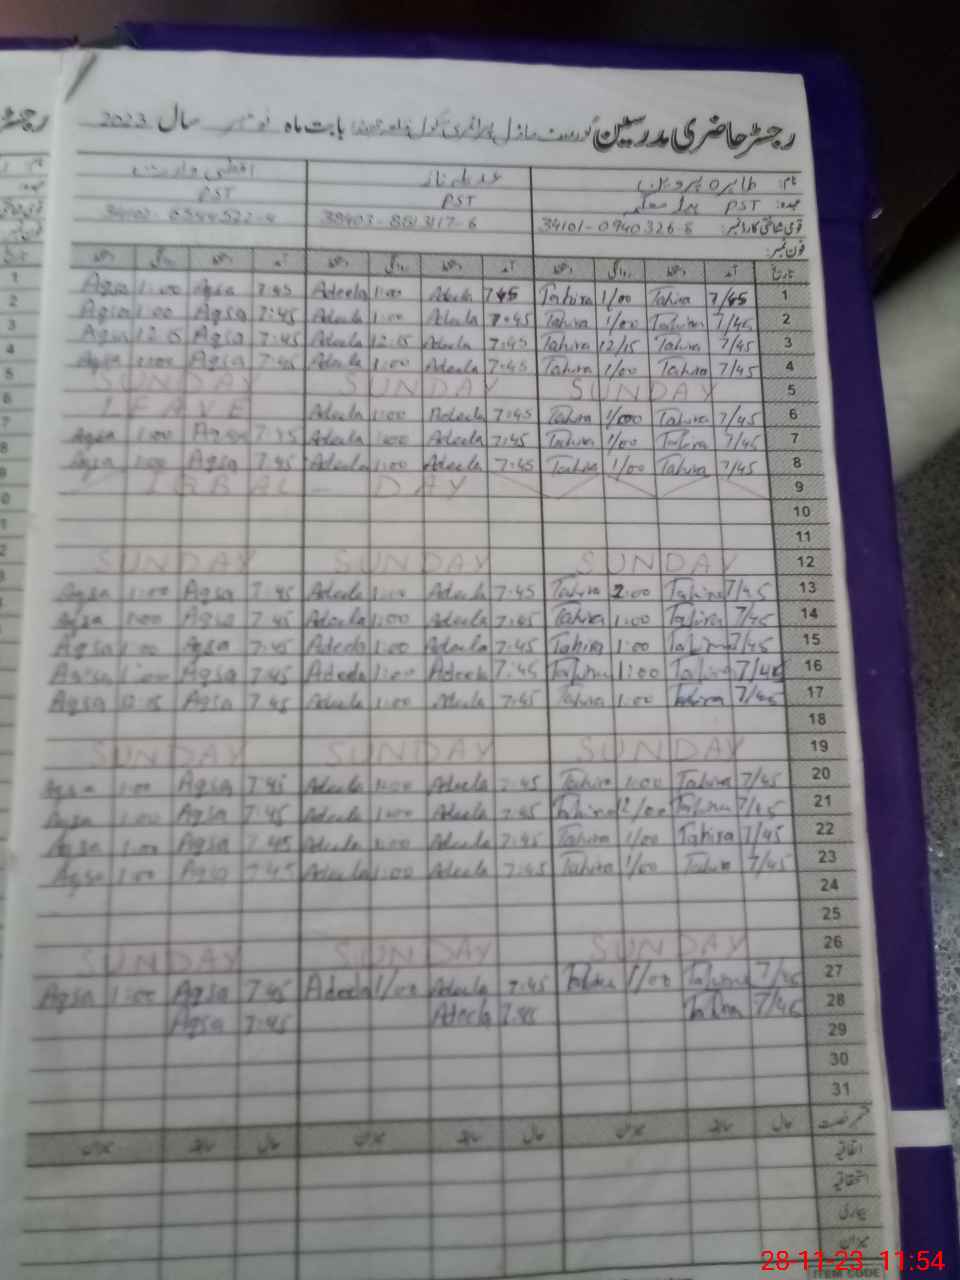 رجسٹر حاضری مدرسین گورنمنٹ ماڈل پرائمری سکول بابت ماہ نومبر سال 2023
نام: طاہرہ پروین عدیلہ ناز اقصیٰ
عہدہ: PST PST PST
قومی شناختی کارڈ نمبر: 34101-0940326-8
فون نمبر:
تاریخ آمد دستخط روانگی دستخط آمد دستخط روانگی دستخط آمد دستخط روانگی دستخط
Aqsa 1:00 Aqsa 7:45 Adeela 1:00 Adeela 7:45 Tahira 1/00 Tahira 7/45 1
Aqsa 1:00 Aqsa 7:45 Adeela 1:00 Adeela 7:45 Tahira 1/00 Tahira 7/45 2
Aqsa 12:15 Aqsa 7:45 Adeela 12:15 Adeela 7:45 Tahira 12/15 Tahira 7/45 3
Aqsa 1:00 Aqsa 7:45 Adeela 1:00 Adeela 7:45 Tahira 1/00 Tahira 7/45 4
SUNDAY SUNDAY SUNDAY 5
LEAVE Adeela 1:00 Adeela 7:45 Tahira 1/00 Tahira 7/45 6
Aqsa 1:00 Aqsa 7:45 Adeela 1:00 Adeela 7:45 Tahira 1/00 Tahira 7/45 7
Aqsa 1:00 Aqsa 7:45 Adeela 1:00 Adeela 7:45 Tahira 1/00 Tahira 7/45 8
IQBAL - DAY 9
10
11
SUNDAY SUNDAY SUNDAY 12
Aqsa 1:00 Aqsa 7:45 Adeela 1:00 Adeela 7:45 Tahira 2:00 Tahira 7/45 13
Aqsa 1:00 Aqsa 7:45 Adeela 1:00 Adeela 7:45 Tahira 1:00 Tahira 7/45 14
Aqsa 1:00 Aqsa 7:45 Adeela 1:00 Adeela 7:45 Tahira 1:00 Tahira 7/45 15
Aqsa 1:00 Aqsa 7:45 Adeela 1:00 Adeela 7:45 Tahira 1:00 Tahira 7/45 16
Aqsa 12:15 Aqsa 7:45 Adeela 1:00 Adeela 7:45 Tahira 1:00 Tahira 7/45 17
18
SUNDAY SUNDAY SUNDAY 19
Aqsa 1:00 Aqsa 7:45 Adeela 1:00 Adeela 7:45 Tahira 1:00 Tahira 7/45 20
Aqsa 1:00 Aqsa 7:45 Adeela 1:00 Adeela 7:45 Tahira Tahira 7/45 21
Aqsa 1:00 Aqsa 7:45 Adeela 1:00 Adeela 7:45 Tahira 1/00 Tahira 7/45 22
Aqsa 1:00 Aqsa 7:45 Adeela 1:00 Adeela 7:45 Tahira 1/00 Tahira 7/45 23
24
25
SUNDAY SUNDAY SUNDAY 26
Aqsa 1:00 Aqsa 7:45 Adeela 1/00 Adeela 7:45 Tahira 1/00 Tahira 7/45 27
Aqsa 7:45 Adeela 7:45 Tahira 7/45 28
29
30
31
حال سابقہ میزان حال سابقہ میزان حال سابقہ میزان
اتفاقیہ
استحقاقیہ
بیماری
میزان
28-11-23 11:54
ITEM CODE